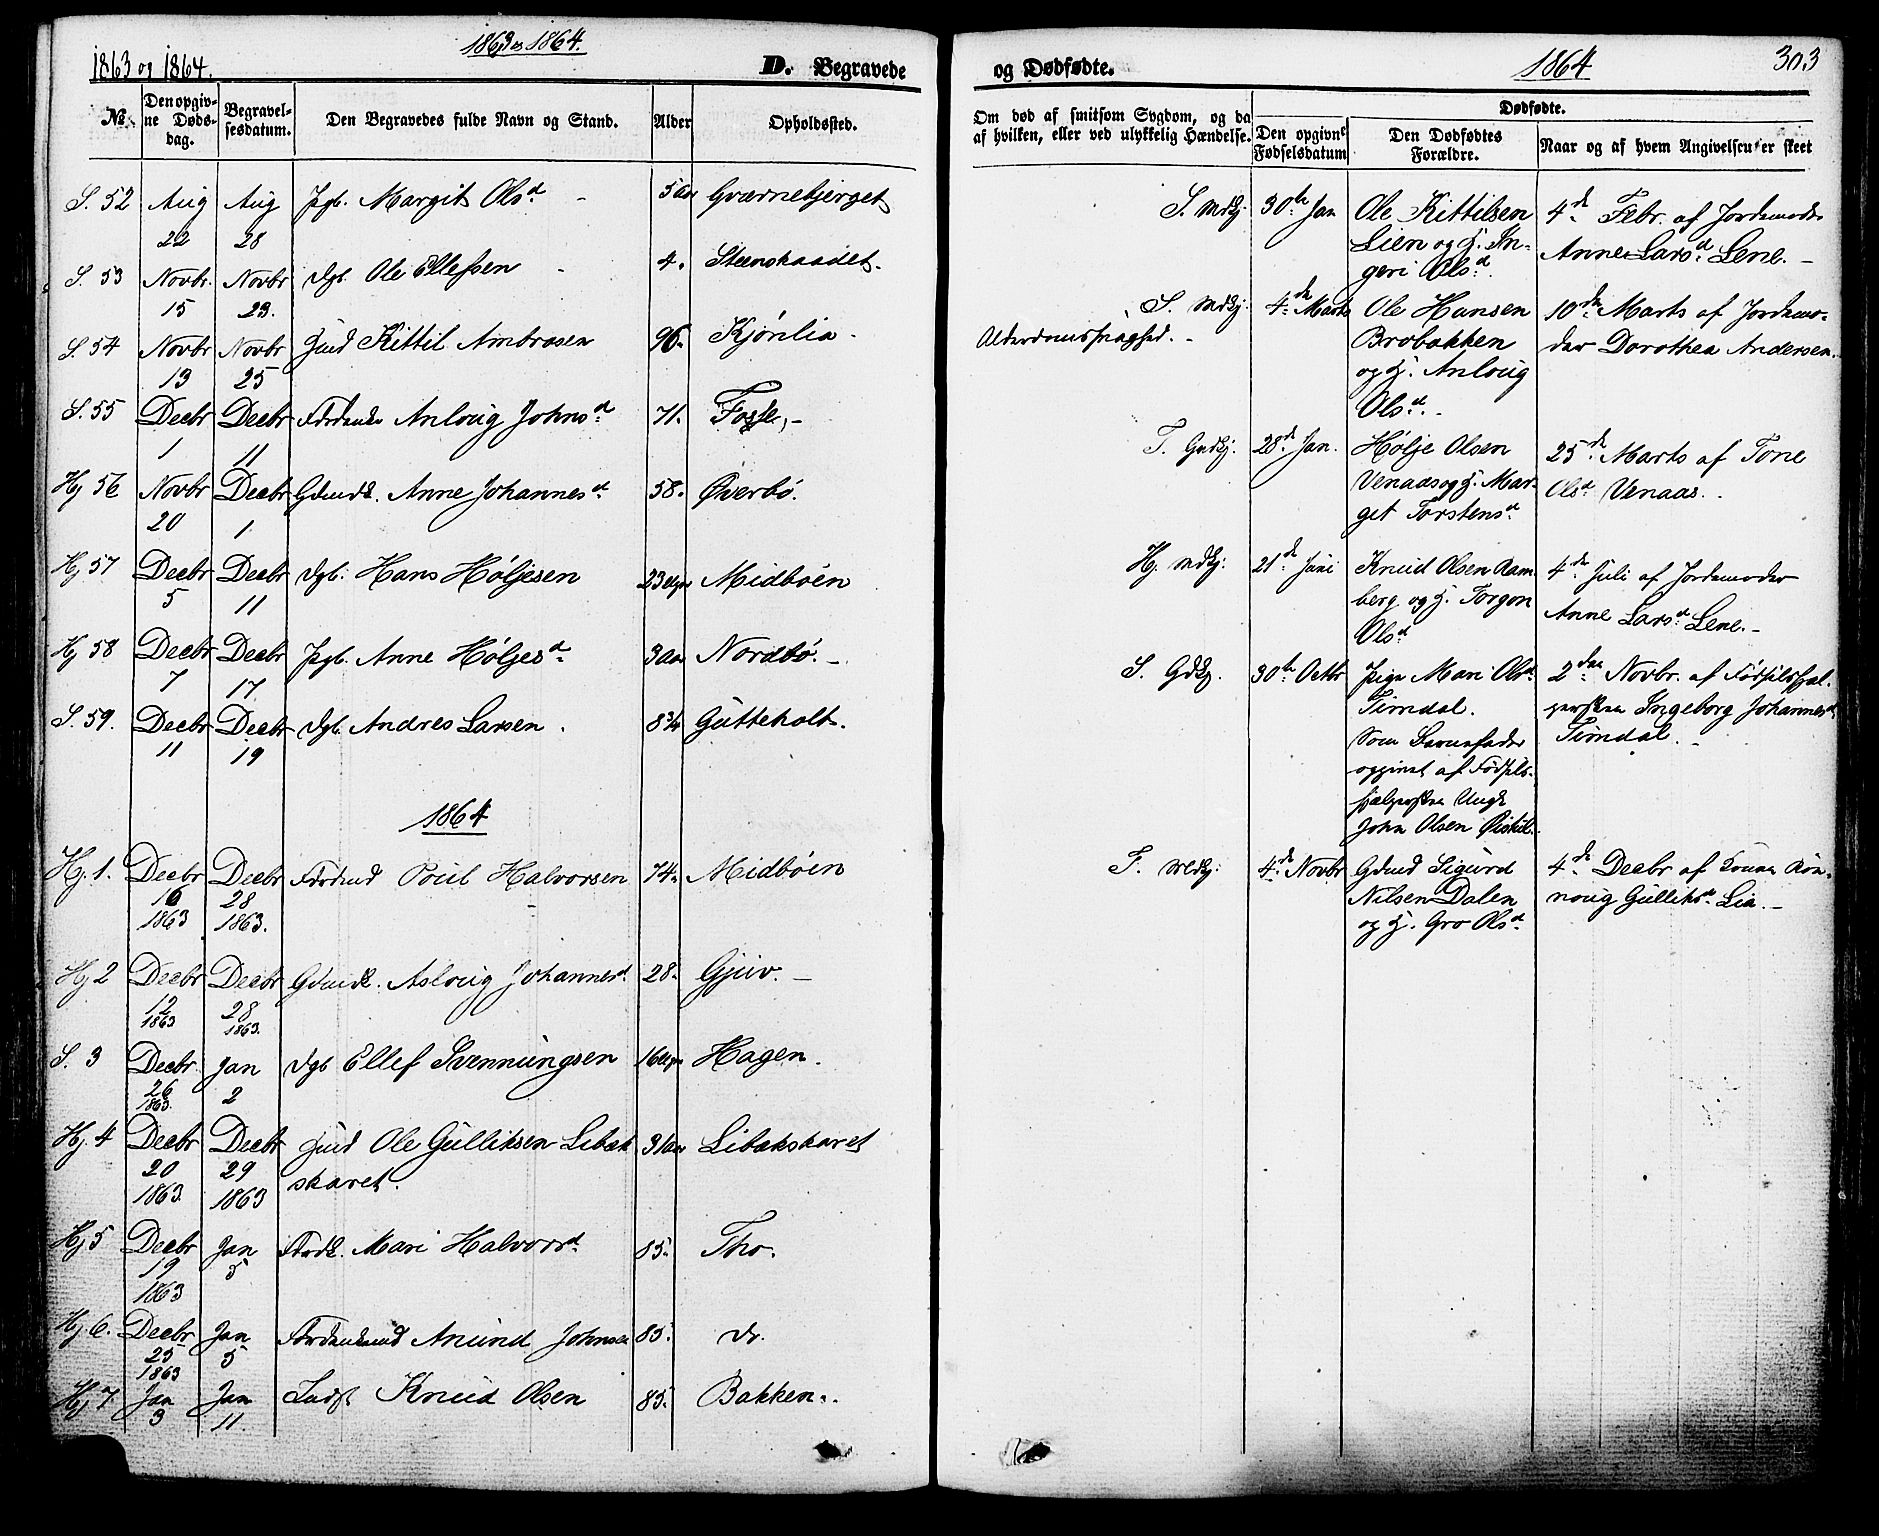 1863 og 1864.
1863 og 1864.
D. Begravede
No
Den opgiv-
ne Døds-
dag.
Begravel-
sesdatum.
Den Begravedes fulde Navn og Stand.
Alder
Opholdssted.
S. 52 Aug 22 Aug 28 Pgb. Margit Olsd 5 Aar Gværnebjerget
S. 53 Novbr. 15 Novbr 23. Dgb. Ole Ellefsen 4. Steenskaadet.
S. 54 Novbr 13 Novbr 25 Gmd Kittil Ambrosen 96. Kjønlia
S. 55 Decbr 1 Decbr 11 Anloug Johnsd 71. Fosse,
Hj 56 Novbr 20 Decbr 1. Gdmdk. Anne Johannesd 58. Øverbö.
Hj 57 Decbr 5 Decbr 11 Dgb. Hans Höljesen 23 Midböen
Hj 58 Decbr 7 Decbr 17 Pgb. Anne Höljesd 3 Aar Nordbö.
S. 59. Decbr 11 Decbr 19 Dgb. Andres Larsen 8 3/4 Gutteholt.
1864
Hj. 1. Decbr 16 1863 Decbr 28 1863. Poul Halvorsen 74. Midböen
Hj 2 Decbr 12 1863 Decbr 28 1863. Gdmdk. Asloug Johannesd 28. Gjuv.
S. 3 Decbr 26 1863. Jan 2 Dgb Ellef Svennungsen 16 Hagen.
Hj. 4 Decbr 20 1863. Decbr 29 1863 Ole Gulliksen Libak
skaret. 31 Aar Libakskaret
Hj 5 Decbr 19 1863 Jan 5 Mari Halvorsd 85. Tho.
Hj. 6. Decbr 25 1863 Jan 5 Anund Johnsen 85. Do.
Hj 7 Jan 3 Jan 11. Knud Olsen 85. Bakken.
og Dødfødte.
1864
303
Om død af smitsom Sygdom, og da
af hvilken, eller ved ulykkelig Hændelse.
Dødfødte.
Den opgivne
Fødselsdatum
Den Dødfødtes
Forældre.
Naar og af hvem Angivelsen er skeet
Alderdomssvaghed.
S. Mdkj. 30te Jan Ole Kittilsen
Lien og H. In-
geri Olsd. 4de Febr. af Jordemoder
Anne Larsd Lene.
S. Mdkj. 4de Marts Ole Hansen
Brobakken
og H. Anloug
Olsd. 10de Marts af Jordemo-
der Dorothea Andersen.
T. Gndkj. 28de Jan. Hølje Olsen
Venaas og H. Mar-
get Torstensd 25de Marts af Tone
Olsd Venaas.
Hj. Mdkj. 21de Juni Knud Olsen Aam-
berg og H. Torgon
Olsd 4de Juli af Jordemoder
Anne Larsd Lene.
S. Gdkj. 30te Octbr Pige Mari Olsd
Timdal.
Som Barnefader
opgivet af Födsels-
hjælpersken Ungk
John Olsen 2den Novbr. af Födselshjæl-
persken Ingeborg Johannesd
Timdal.
T. Mdkj. 4de Novbr Gdmd Sigurd
Nilsen Dalen
og H. Gro Olsd 4de Decbr af Konen Rön-
noug Gulliksd Lia.